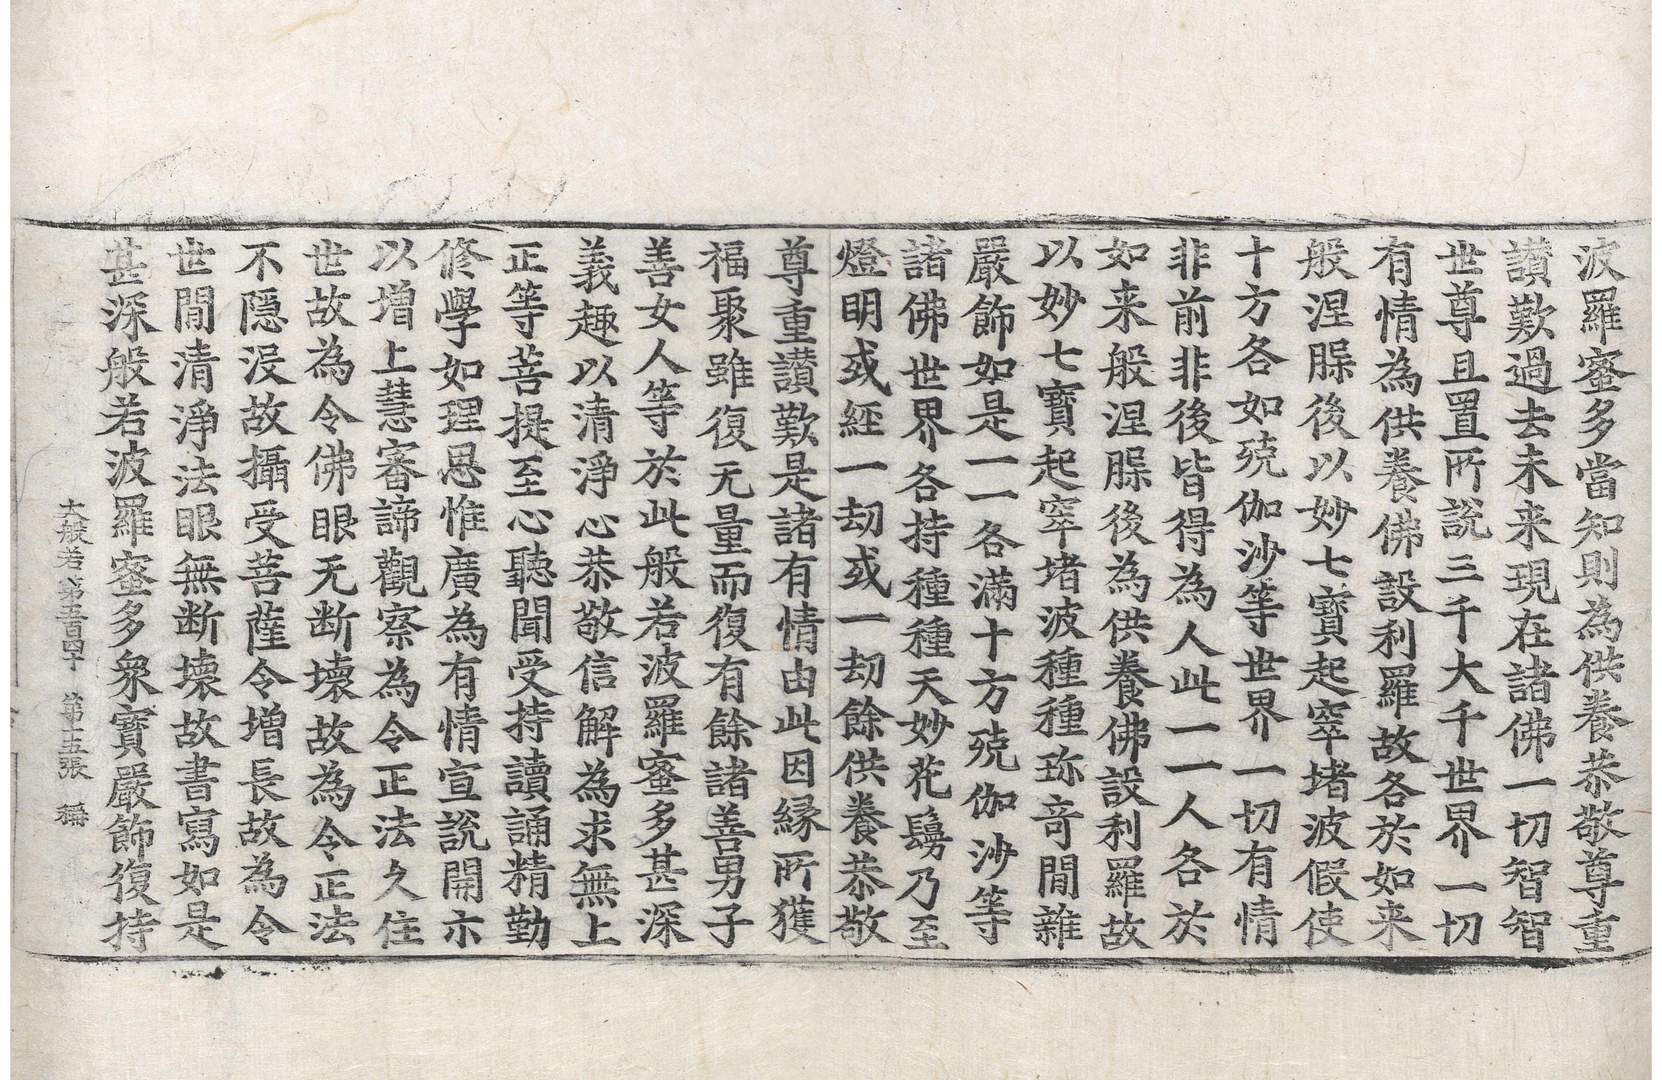 波羅蜜多當知則為供養恭敬尊重
讃歎過去未来現在諸佛一切智智
世尊且置所說三千大千世界一切
有情為供養佛設利羅故各於如来
般涅槃後以妙七寶起窣堵波假使
十方各如殑伽沙等世界一切有情
非前非後皆得為人此一一人各於
如来般涅槃後為供養佛設利羅故
以妙七寶起窣堵波種種珎竒閒雜
嚴飾如是一一各滿十方殑伽沙等
諸佛世界各持種種天妙花鬘乃至
燈明或經一劫或一劫餘供養恭敬
尊重讃歎是諸有情由此因緣所獲
福聚雖復无量而復有餘諸善男子
善女人等於此般若波羅蜜多甚深
義趣以清淨心恭敬信解為求無上
正等菩提至心聽聞受持讀誦精勤
修學如理思惟廣為有情宣說開示
以增上慧審諦觀察為令正法久住
世故為令佛眼无断壞故為令正法
不隱没故攝受菩薩令增長故為令
世閒清淨法眼無断壞故書寫如是
甚深般若波羅蜜多衆寶嚴飾復持
大般若第五百四十 第十五張 稱